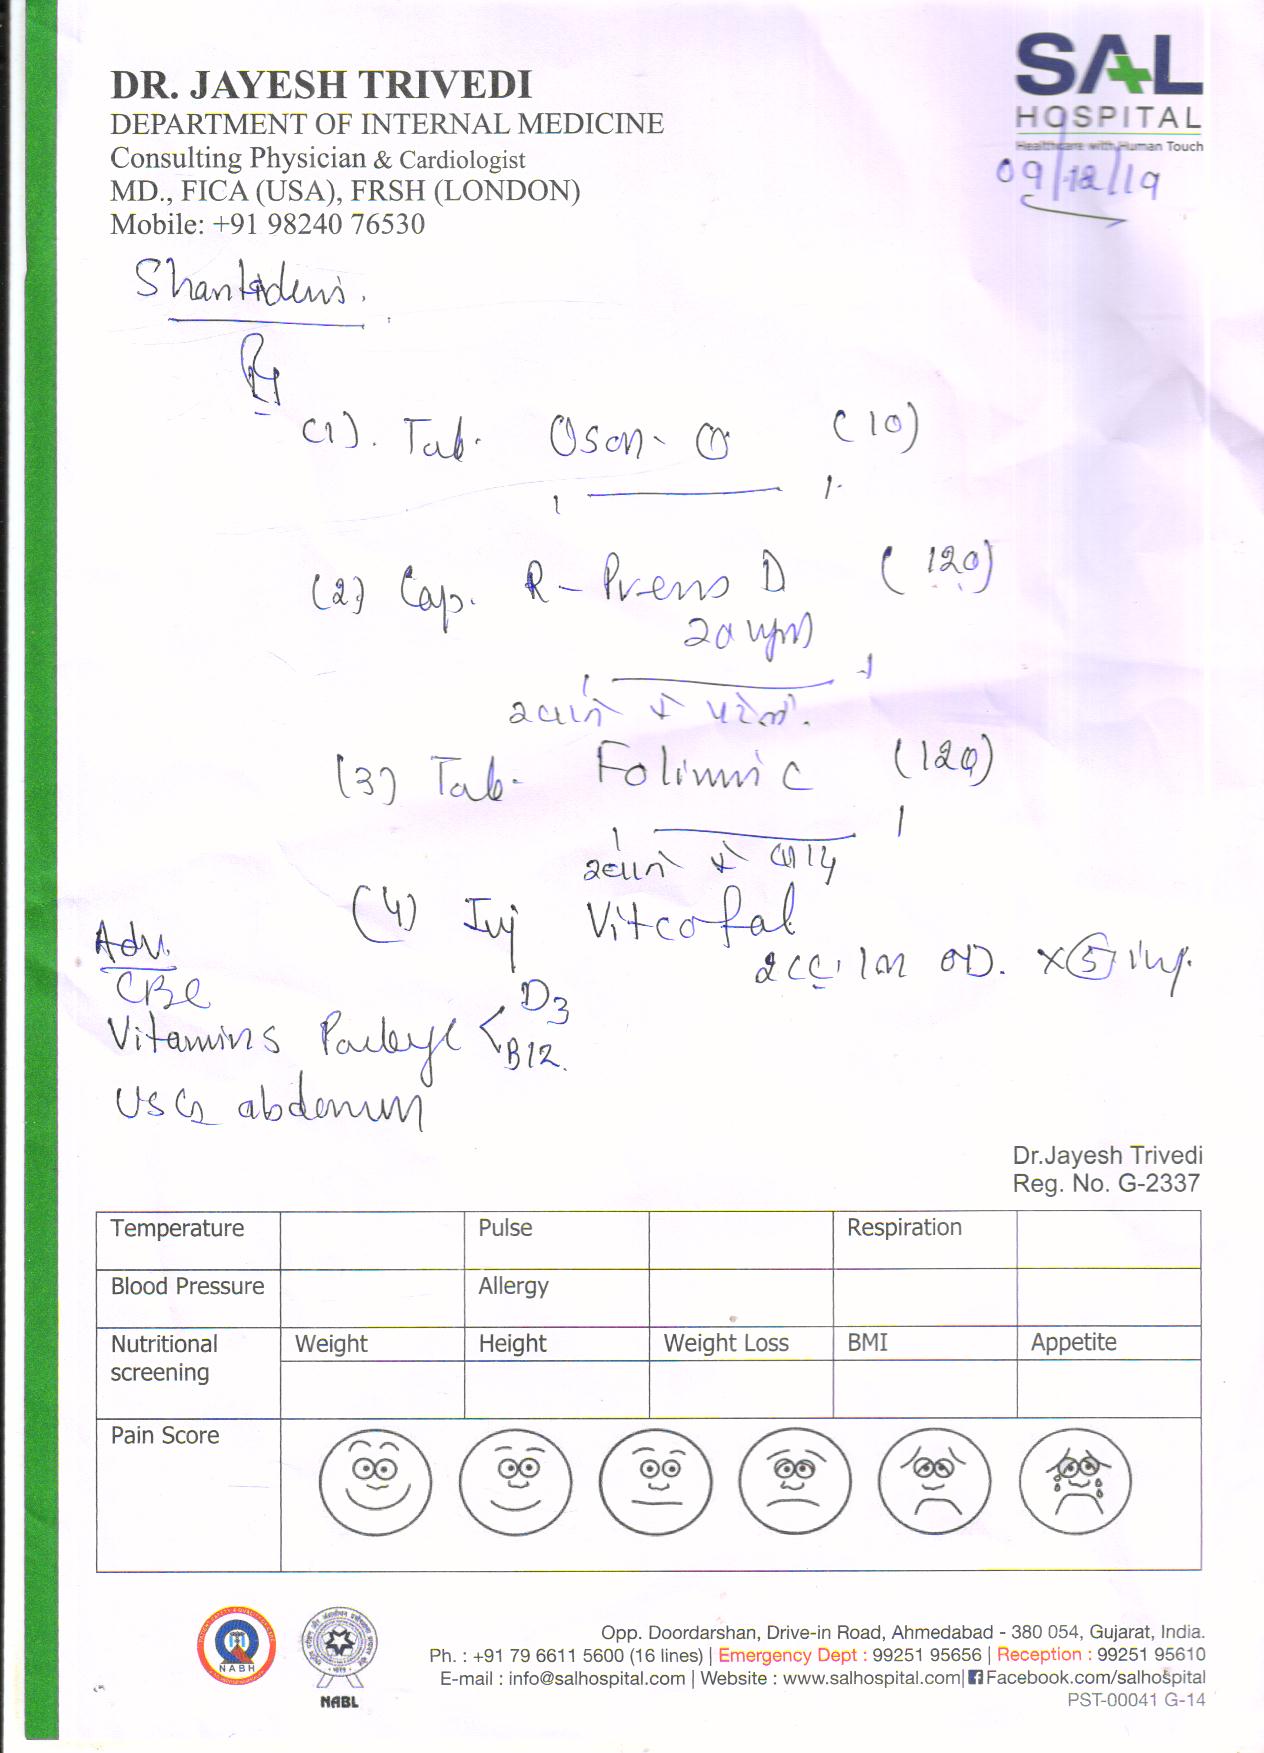 DR. JAYESH TRIVEDI
DEPARTMENT OF INTERNAL MEDICINE
Consulting Physician & Cardiologist
MD., FICA (USA), FRSH (LONDON)
Mobile: +91 98240 76530
SAL
HOSPITAL
Healthcare with Human Touch
09/12/19
(1). Tab. (10)
(2) Cap. R- D (120)
(3) Tab. (120)
(4) Inj Vitcofal
2cc. IM OD. x 5 inj.
Adv.
CBC
Vitamins D3
B12.
USG abdomen
Dr.Jayesh Trivedi
Reg. No. G-2337
Temperature Pulse Respiration
Blood Pressure Allergy
Nutritional screening Weight Height Weight Loss BMI Appetite
Pain Score
NABH
NABL
Opp. Doordarshan, Drive-in Road, Ahmedabad - 380 054, Gujarat, India.
Ph. : +91 79 6611 5600 (16 lines) | Emergency Dept : 99251 95656 | Reception : 99251 95610
E-mail : info@salhospital.com | Website : www.salhospital.com| Facebook.com/salhospital
PST-00041 G-14